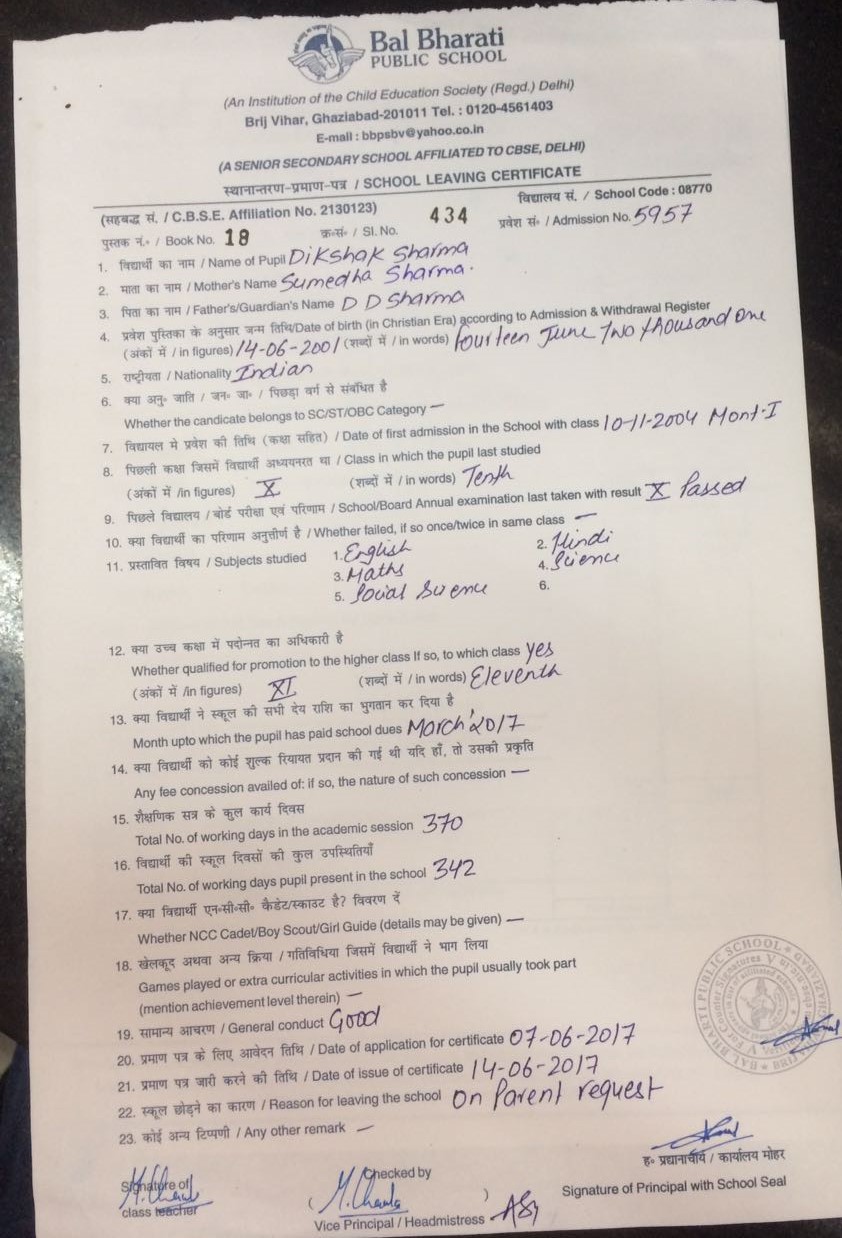 Bal Bharati
PUBLIC SCHOOL
(An Institution of the Child Education Society (Regd.) Delhi)
Brij Vihar, Ghaziabad-201011 Tel. : 0120-4561403
E-mail : bbpsbv@yahoo.co.in
(A SENIOR SECONDARY SCHOOL AFFILIATED TO CBSE, DELHI)
स्थानान्तरण-प्रमाण-पत्र / SCHOOL LEAVING CERTIFICATE
(सहबद्ध सं. / C.B.S.E. Affiliation No. 2130123) विद्यालय सं. / School Code : 08770
पुस्तक नं॰ / Book No. 18 क्र॰सं॰ / SI. No. 434 प्रवेश सं॰ / Admission No. 5957
1. विद्यार्थी का नाम / Name of Pupil Dikshak Sharma
2. माता का नाम / Mother's Name Sumedha Sharma.
3. पिता का नाम / Father's/Guardian's Name D D Sharma
4. प्रवेश पुस्तिका के अनुसार जन्म तिथि/Date of birth (in Christian Era) according to Admission & Withdrawal Register
(अंकों में / in figures) 14-06-2001 (शब्दों में / in words) fourteen June Two thousand one
5. राष्ट्रीयता / Nationality Indian
6. क्या अनु॰ जाति / जन॰ जा॰ / पिछड़ा वर्ग से संबंधित है
Whether the candicate belongs to SC/ST/OBC Category —
7. विद्यायल मे प्रवेश की तिथि (कक्षा सहित) / Date of first admission in the School with class 10-11-2004 Mont-I
8. पिछली कक्षा जिसमें विद्यार्थी अध्ययनरत था / Class in which the pupil last studied
(अंकों में /in figures) X (शब्दों में / in words) Tenth
9. पिछले विद्यालय / बोर्ड परीक्षा एवं परिणाम / School/Board Annual examination last taken with result X Passed
10. क्या विद्यार्थी का परिणाम अनुत्तीर्ण है / Whether failed, if so once/twice in same class —
11. प्रस्तावित विषय / Subjects studied 1. English 2. Hindi
3. Maths 4. Science
5. Social Science 6.
12. क्या उच्च कक्षा में पदोन्नत का अधिकारी है
Whether qualified for promotion to the higher class If so, to which class yes
(अंकों में /in figures) XI (शब्दों में / in words) Eleventh
13. क्या विद्यार्थी ने स्कूल की सभी देय राशि का भुगतान कर दिया है
Month upto which the pupil has paid school dues March'2017
14. क्या विद्यार्थी को कोई शुल्क रियायत प्रदान की गई थी यदि हाँ, तो उसकी प्रकृति
Any fee concession availed of: if so, the nature of such concession —
15. शैक्षणिक सत्र के कुल कार्य दिवस
Total No. of working days in the academic session 370
16. विद्यार्थी की स्कूल दिवसों की कुल उपस्थितियाँ
Total No. of working days pupil present in the school 342
17. क्या विद्यार्थी एन॰सी॰सी॰ कैडेट/स्काउट है? विवरण दें
Whether NCC Cadet/Boy Scout/Girl Guide (details may be given) —
18. खेलकूद अथवा अन्य क्रिया / गतिविधिया जिसमें विद्यार्थी ने भाग लिया
Games played or extra curricular activities in which the pupil usually took part
(mention achievement level therein) —
19. सामान्य आचरण / General conduct Good
20. प्रमाण पत्र के लिए आवेदन तिथि / Date of application for certificate 07-06-2017
21. प्रमाण पत्र जारी करने की तिथि / Date of issue of certificate 14-06-2017
22. स्कूल छोड़ने का कारण / Reason for leaving the school On Parent request
23. कोई अन्य टिप्पणी / Any other remark —
BAL BHARATI PUBLIC SCHOOL
ह॰ प्रधानाचार्य / कार्यालय मोहर
Signature of Checked by Signature of Principal with School Seal
class teacher ( M. Chawla )
Vice Principal / Headmistress